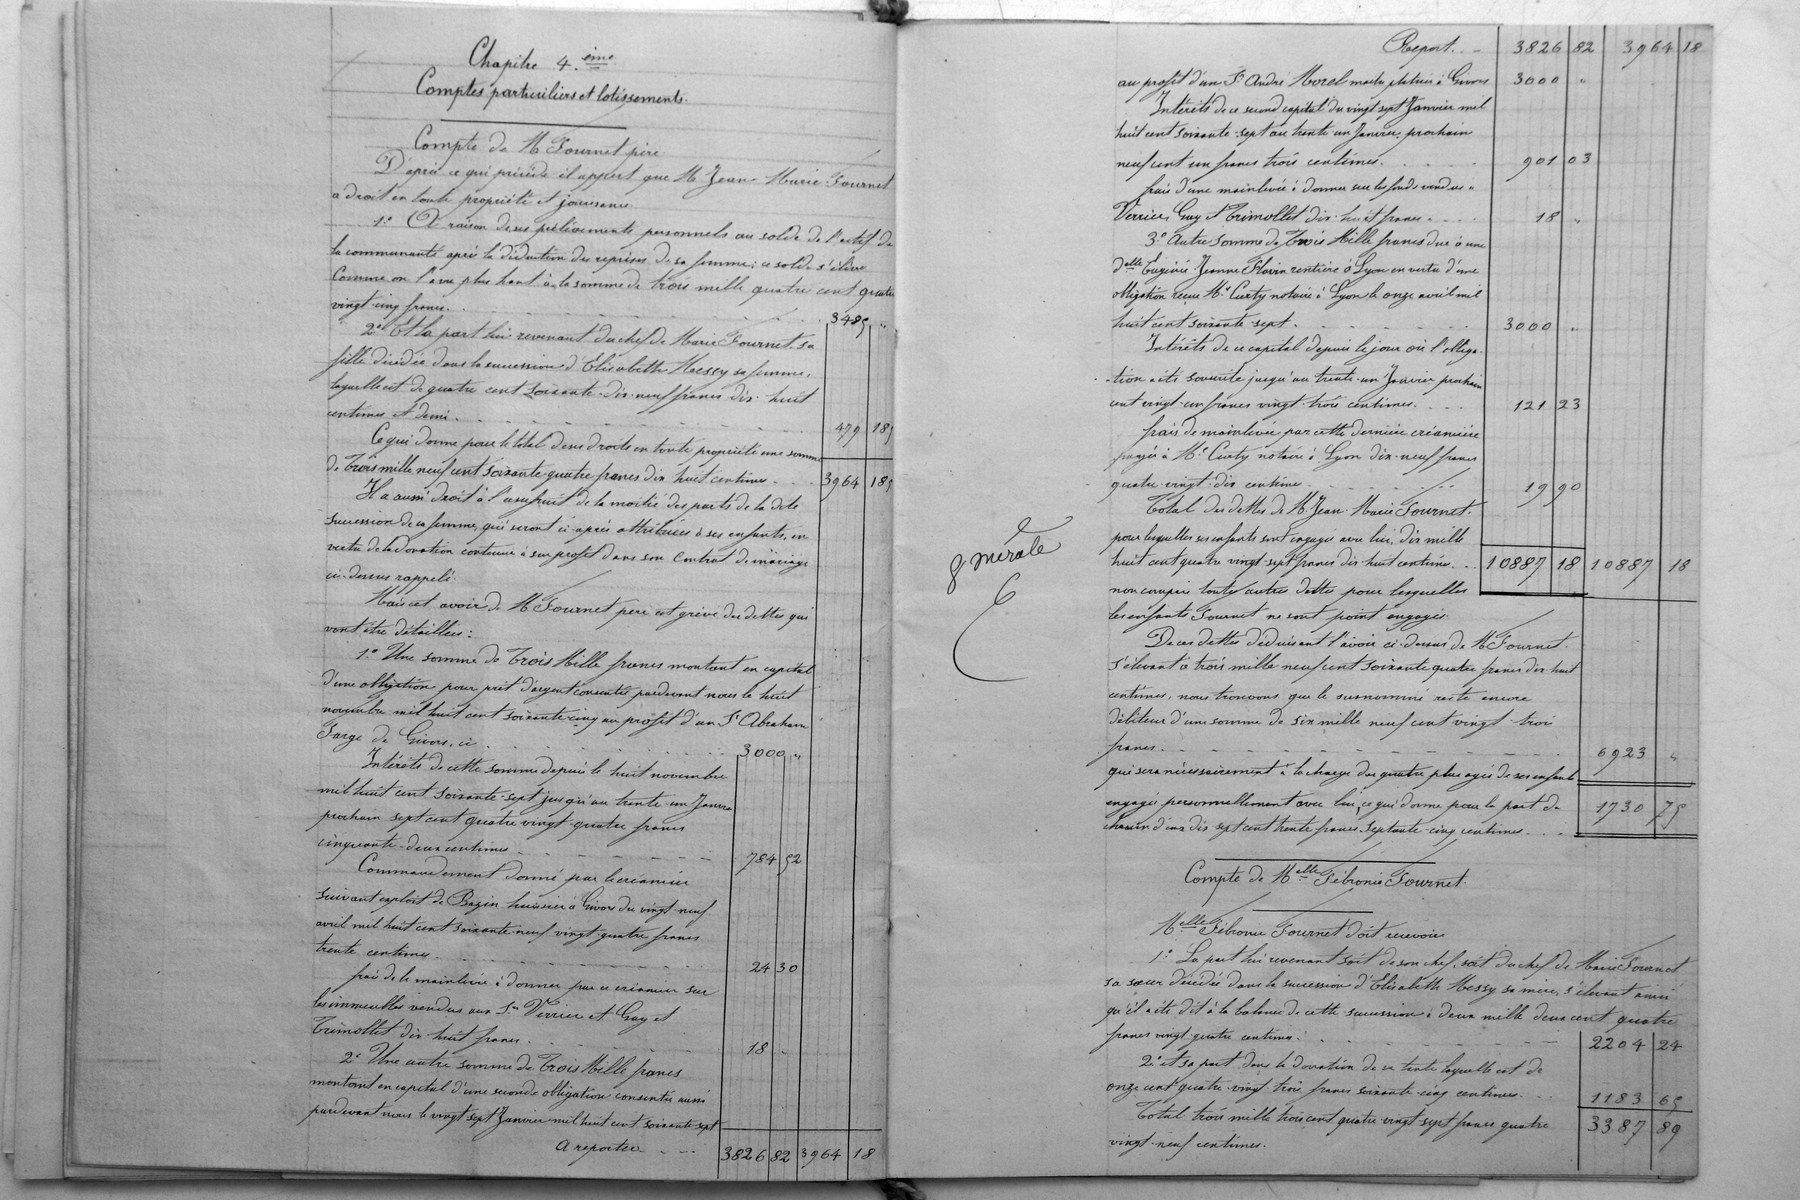 Chapitre 4.ème
Comptes particuliers et lotissements.
Compte de M Fournet père
D'après ce qui précède il appert que M Jean-Marie Fournet
a droit en toute propriété et jouissance
1.º A raison de ses prélèvements personnels au solde de l'actif de
la communauté après la déduction des reprises de sa femme; ce solde s'élève
comme on l'a vu plus haut à la somme de trois mille quatre cent quatre
vingt-cinq francs. 3485 "
2.º Et la part lui revenant du chef de Marie Fournet sa
fille décédée dans la succession d'Elisabeth Messy sa femme,
laquelle est de quatre cent soixante-dix-neuf francs dix-huit
centimes et demi. 479 185
Ce qui donne pour le total de ses droits en toute propriété une somme
de Trois mille neuf cent soixante-quatre francs dix huit centimes. 3964 185
Il a aussi droit à l'usufruit de la moitié des parts de la dite
succession de sa femme, qui seront ci-après attribuées à ses enfants, en
vertu de la donation contenue à son profit dans son Contrat de mariage
ci-dessus rappelé.
Mais cet avoir de M Fournet père est grévé des dettes qui
vont être détaillées:
1.º Une somme de Trois Mille francs montant en capital
d'une obligation pour prêt d'argent consentie pardevant nous le huit
novembre mil huit cent soixante-cinq au profit d'un Sr Abraham
Farge de Givors, ci 3000 "
Intérêts de cette somme depuis le huit novembre
mil huit cent soixante-sept jusqu'au trente-un Janvier
prochain sept cent quatre vingt-quatre francs
cinquante-deux centimes 784 52
Commandement donné par le créancier
suivant exploit de Bazin huissier à Givors du vingt-neuf
avril mil huit cent soixante-neuf vingt-quatre francs
trente centimes. 24 30
frais de la mainlevée à donner par ce créancier sur
les immeubles vendus aux Srs Verrier et Guy et
Trémollet dix huit francs. 18 "
2.º Une autre somme de Trois Mille francs
montant en capital d'une seconde obligation consentie aussi
pardevant nous le vingt-sept Janvier mil huit cent soixante-sept
A reporter 3826 82 3964 18
Report. 3826 82 3964 18
au profit d'un Sr André Morel à Givors 3000 "
Intérêts de ce second capital du vingt sept Janvier mil
huit cent soixante-sept au trente un Janvier prochain
neuf cent un francs trois centimes. 901 03
frais d'une mainlevée à donner sur les fonds vendus à
Verrier, Guy et Trémollet dix-huit francs. 18 "
3.º Autre somme de Trois Mille francs due à une
delle Eugénie Jeanne Flavin rentière à Lyon en vertu d'une
obligation reçue Me Curty notaire à Lyon le onze avril mil
huit cent soixante sept. 3000 "
Intérêts de ce capital depuis le jour où l'obliga-
tion a été souscrite jusqu'au trente-un Janvier prochain
cent vingt-un francs vingt-trois centimes. 121 23
frais de mainlevée par cette dernière créancière
payés à Me Curty notaire à Lyon dix-neuf francs
quatre-vingt-dix centimes 19 90
Total des dettes de M Jean-Marie Fournet
pour lesquelles ses enfants sont engagés avec lui, dix mille
huit cent quatre vingt-sept francs dix-huit centimes. 10887 18 10887 18
non compris toutes autres dettes pour lesquelles
les enfants Fournet ne sont point engagés.
De ces dettes déduisant l'avoir ci-dessus de M Fournet
s'élevant à trois mille neuf cent soixante quatre francs dix huit
centimes, nous trouvons que le susnommé reste encore
débiteur d'une somme de six mille neuf cent vingt-trois
francs. 6923 "
qui sera nécessairement à la charge des quatre plus âgés de ses enfants
engagés personnellement avec lui, ce qui donne pour la part de
chacun d'eux dix sept cent trente francs septante-cinq centimes 1730 75
Compte de Melle Fébronie Fournet
Melle Fébronie Fournet doit recevoir
1.º La part lui revenant soit de son chef, soit du chef de Marie Fournet
sa sœur décédée dans la succession d'Elisabeth Messy sa mère, s'élevant ainsi
qu'il a été dit à la balance de cette succession à deux mille deux cent quatre
francs vingt-quatre centimes. 2204 24
2.º et sa part dans la donation de sa tante laquelle est de
onze cent quatre-vingt-trois francs soixante-cinq centimes. 1183 65
Total trois mille trois cent quatre vingt-sept francs quatre 3387 89
vingt-neuf centimes.